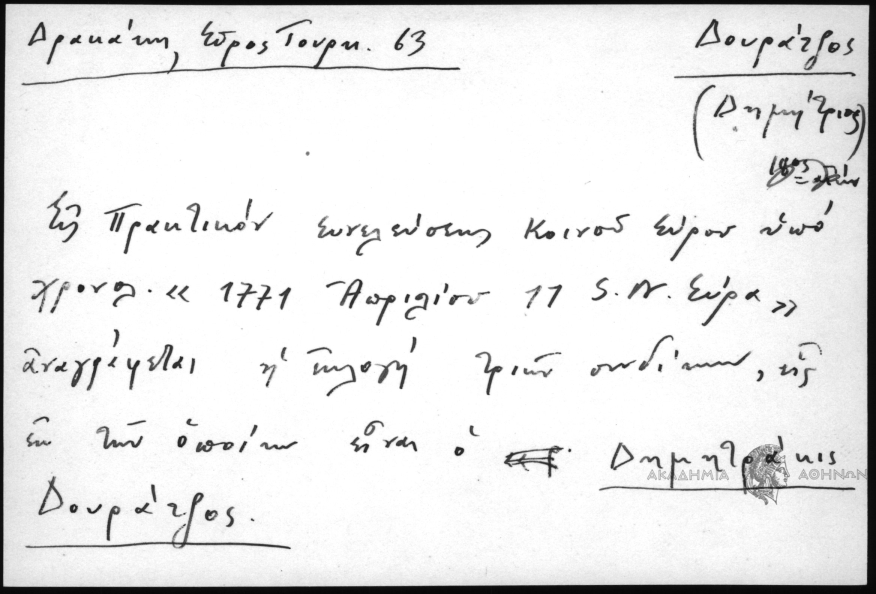 Δρακάκη, Σῦρος Τουρκ. 63
Δουράτζος
(Δημήτριος)
18ος
Εἰς Πρακτικὸν συνελεύσεως Κοινοῦ Σύρου ὑπό
χρονολ. « 1771 Ἀπριλίου 11 S.N. Σύρα »
ἀναγράφεται ἡ ἐκλογή τριῶν συνδίκων, εἷς
ἐκ τῶν ὁποίων εἶναι ὁ Δημητράκις
Δουράτζος.
ΑΚΑΔΗΜΙΑ ΑΘΗΝΩΝ